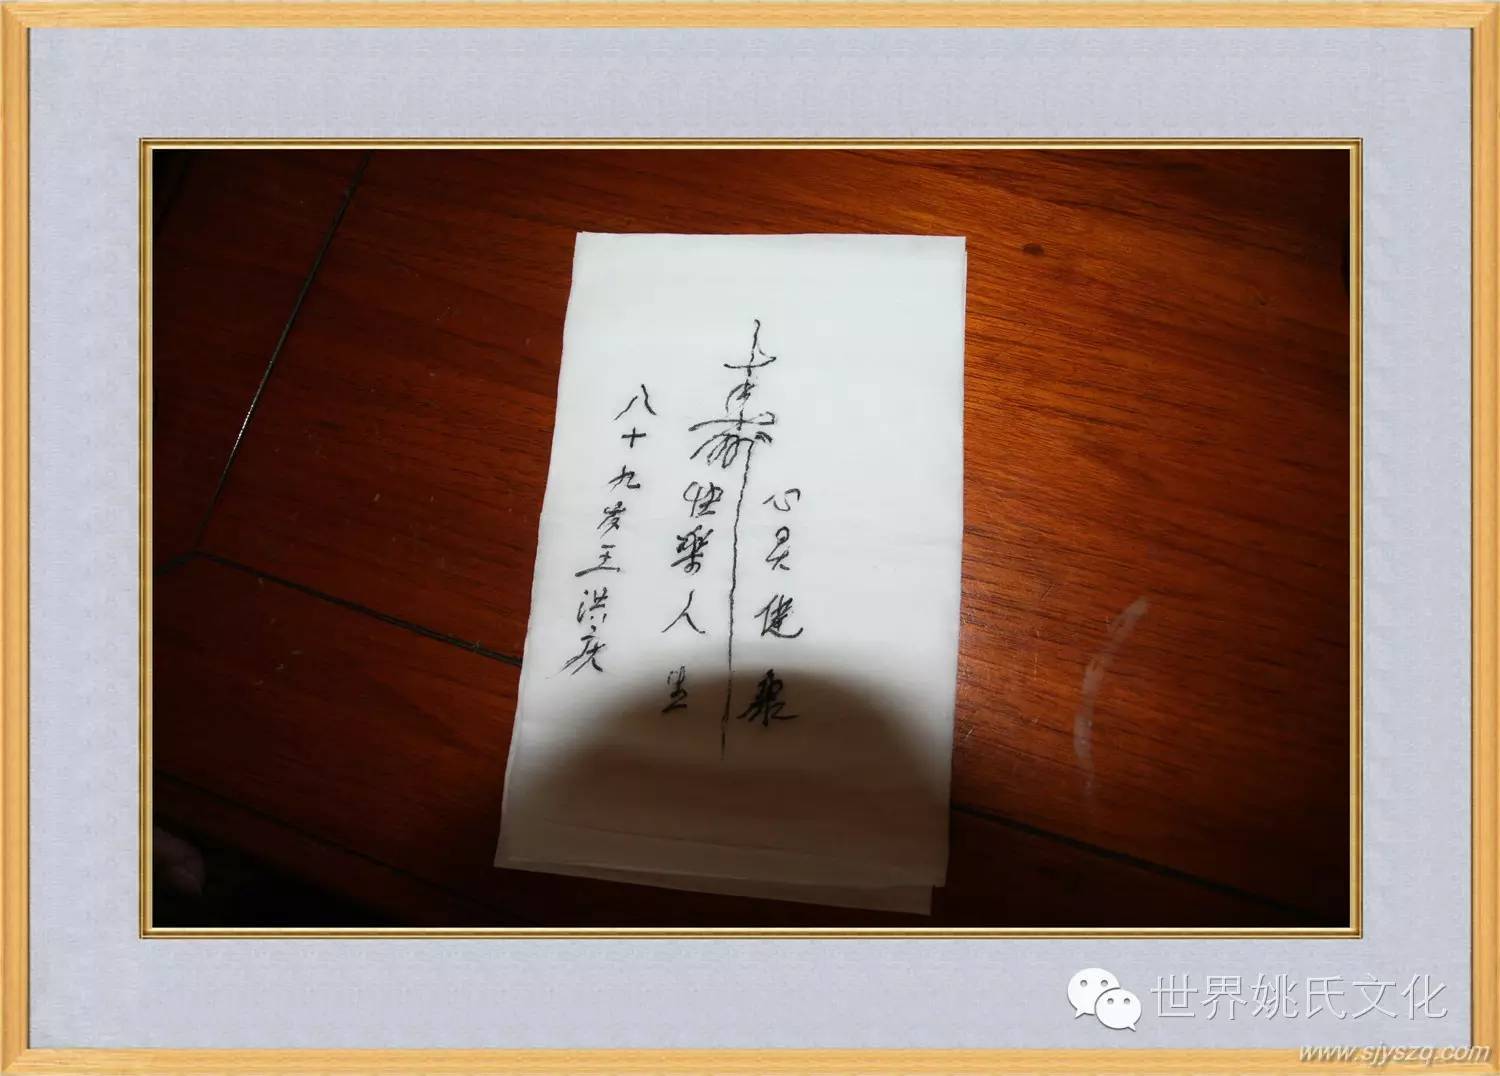 心灵健康
壽
快樂人生
八十九岁王洪庆
世界姚氏文化
www.sjyszq.com